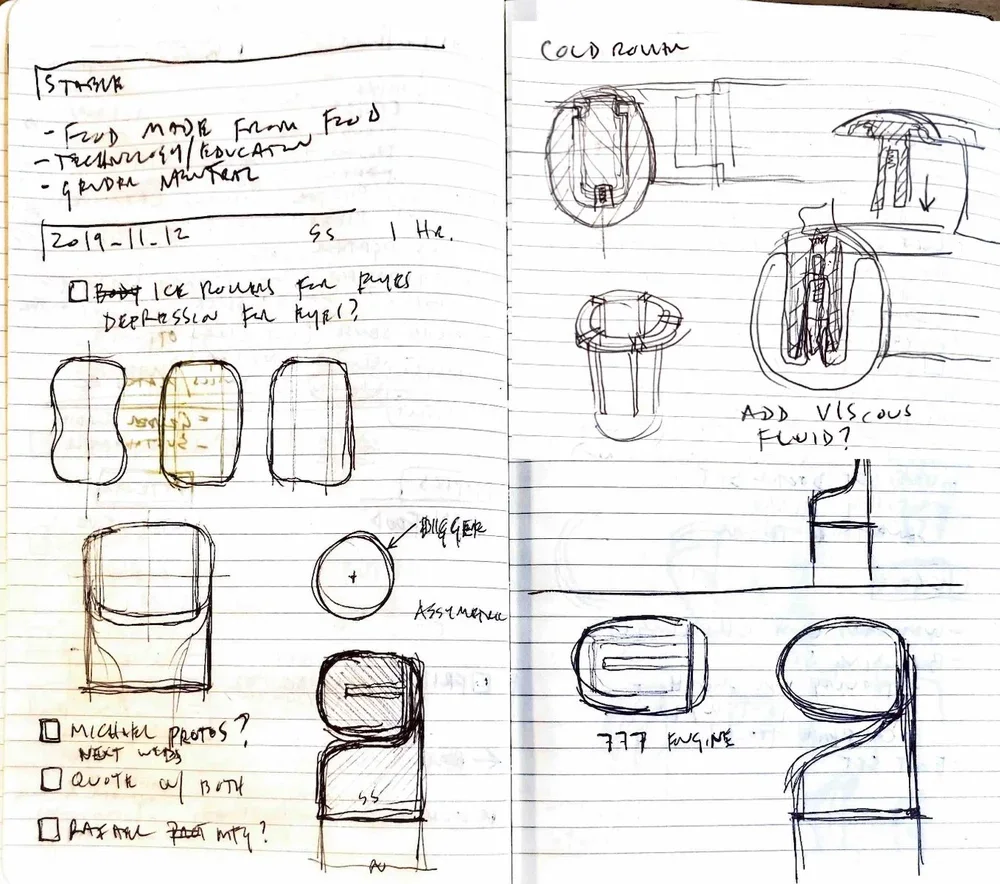 STABLE
- FOOD MADE FROM FOOD
- TECHNOLOGY/EDUCATION
- GENDER NEUTRAL
2019-11-12 SS 1 HR.
ICE ROLLERS FOR EYES
DEPRESSION FOR EYES?
BIGGER
ASSYMETRIC
SS
MICHAEL PROTOS?
NEXT WEEK
QUOTE W/ BOTH
RAFAEL MFG?
COLD ROLLER
ADD VISCOUS
FLUID?
777 ENGINE